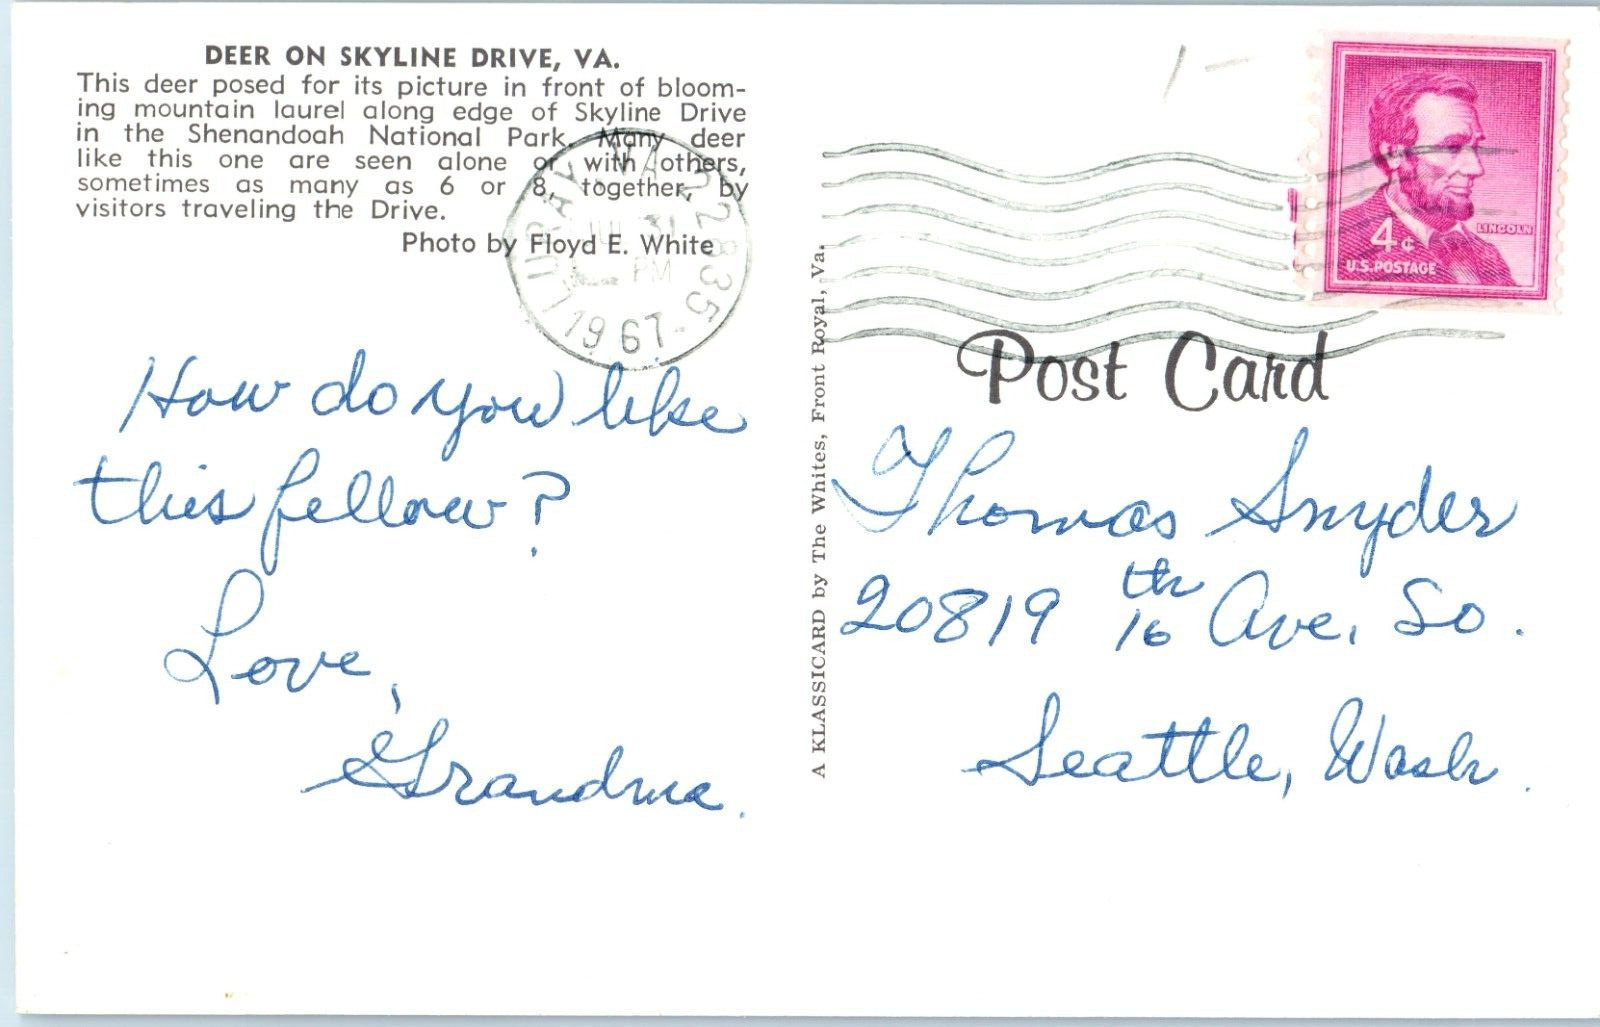 DEER ON SKYLINE DRIVE, VA.
This deer posed for its picture in front of bloom-
ing mountain laurel along edge of Skyline Drive
in the Shenandoah National Park. Many deer
like this one are seen alone or with others,
sometimes as many as 6 or 8, together, by
visitors traveling the Drive.
Photo by Floyd E. White
LURAY, VA. 22835
JUL 31
PM
1967
How do you like
this fellow?
Love,
Grandma.
A KLASSICARD by The Whites, Front Royal, Va.
1-
LINCOLN
4¢
U.S. POSTAGE
Post Card
Thomas Snyder
20819 16th Ave. So.
Seattle, Wash.